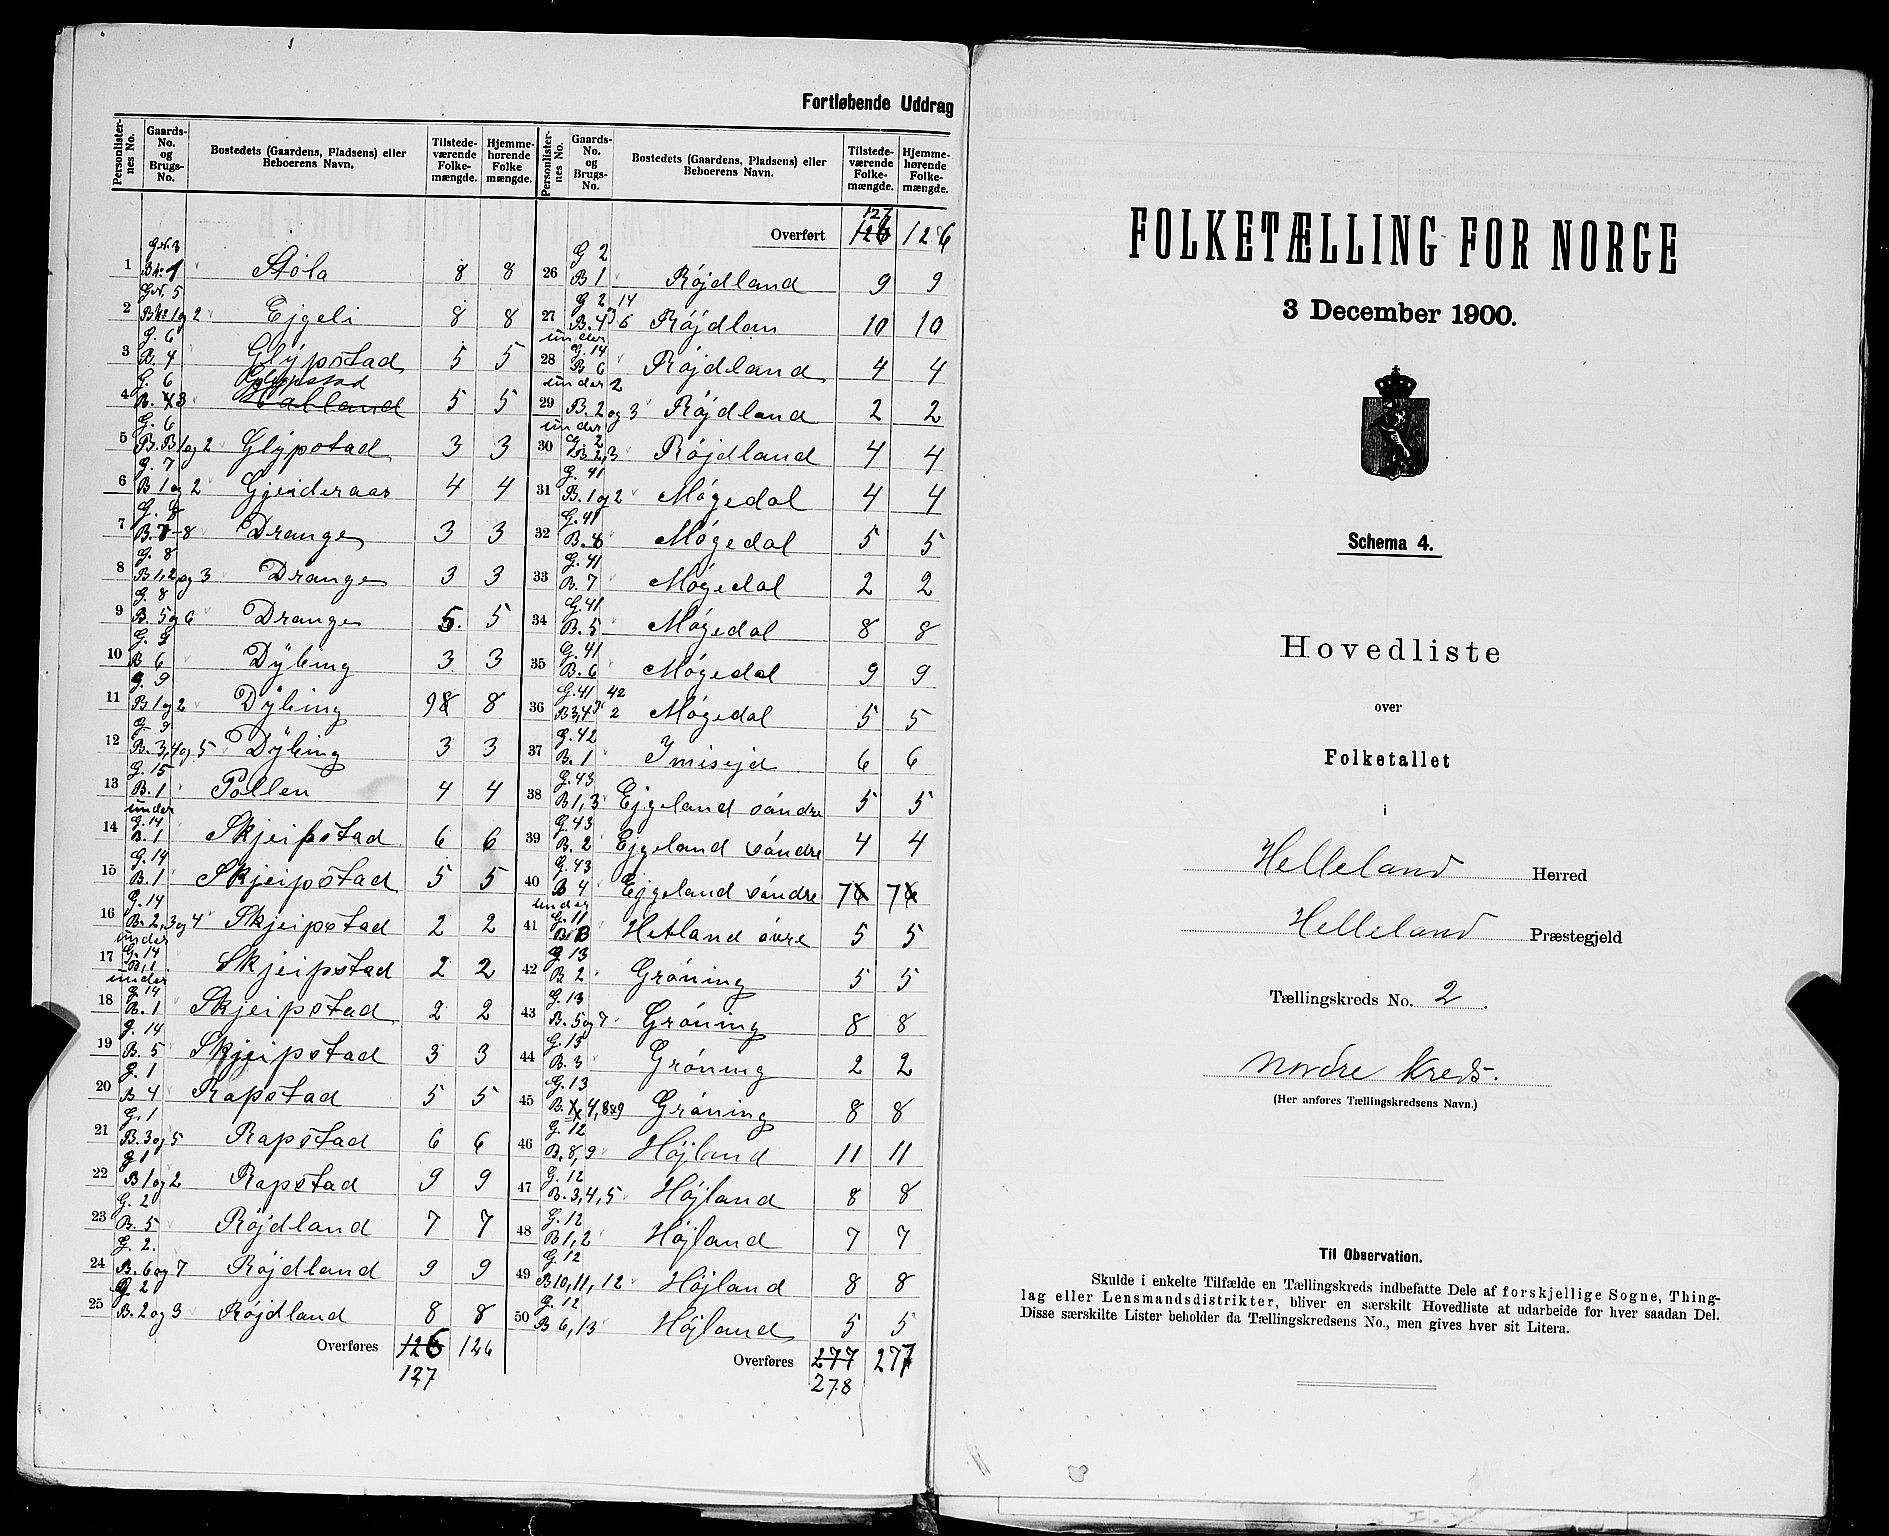 Fortløbende Uddrag
Personlister-nes No. Gaards-No. og Brugs-No. Bostedets (Gaardens, Pladsens) eller Beboerens Navn. Tilstede-værende Folke-mængde. Hjemme-hørende Folke mængde.
1 G.N. 3 B.N. 1 Støla 8 8
2 G.N. 5 B.N. 1 og 2 Ejgeli 8 8
3 G. 6 B. 4 Glypstad 5 5
4 G. 6 B. 3 Glypstad Hålland 5 5
5 G. 6 B. B 1 og 2 Glypstad 3 3
6 G. 7 B 1 og 2 Gjenderaas 4 4
7 G. 8 B. 7-8 Drange 3 3
8 G. 8 B 1, 2 og 3 Drange 3 3
9 G. 8 B. 5 og 6 Drange 5. 5
10 G. 9 B 6 Dybing 3 3
11 G. 9 B 1 og 2 Dybing 98 8
12 G 9 B. 3, 4 og 5 Dybing 3 3
13 G. 15 B. 1 Pollen 4 4
14 under G. 14 B. 1 Skjeipstad 6 6
15 G. 14 B. 1 Skjeipstad 5 5
16 G. 14 B. 2, 3 og 4 Skjeipstad 2 2
17 under G. 14 B. 1 Skjeipstad 2 2
18 under G. 14 B. 1 Skjeipstad 2 2
19 G. 14 B. 5 Skjeipstad 3 3
20 G. 1 B 4 Rapstad 5 5
21 G. 1 B. 3 og 5 Rapstad 6 6
22 G 1 B 1 og 2 Rapstad 9 9
23 G. 2 B. 5 Røjdland 7 7
24 G. 2. B. 6 og 7 Røjdland 9 9
25 G 2 B. 2 og 3 Røjdland 8 8
Overføres 126 126
127
Personlister-nes No. Gaards-No. og Brugs-No. Bostedets (Gaardens, Pladsens) eller Beboerens Navn. Tilstede-værende Folke-mængde. Hjemme-hørende Folke-mængde.
127
Overført 126 126
26 G 2 B 1 Røjdland 9 9
27 G 2 14 B. 4 6 Røjdlan 10 10
28 under G. 14 B 6 Røjdland 4 4
29 under 2 B. 2 og 3 Røjdland 2 2
30 under G. 2 B 2, 3 Røjdland 4 4
31 G. 41 B. 1 og 2 Møgedal 4 4
32 G. 41 B. 8 Møgedal 5 5
33 G. 41 B. 7 Møgedal 2 2
34 G. 41 B. 5 Møgedal 8 8
35 G. 41 B. 6 Møgedal 9 9
36 G. 41 42 B 3, 4 2 Møgedal 5 5
37 G. 42 B. 1 Imisejd 6 6
38 G. 43 B 1, 3 Ejgeland søndre 5 5
39 G. 43 B. 2 Ejgeland søndre 4 4
40 G. 43 B 4 Ejgeland søndre 7 7
41 under G. 11 Hetland øvre 5 5
42 G 13 B 2 Grøning 5 5
43 G. 13 B. 5 og 7 Grøning 8 8
44 G. 13 B. 3 Grøning 2 2
45 G. 13 B. 4, 8 & 9 Grøning 8 8
46 G. 12 B. 8, 9 Højland 11 11
47 G. 12 B. 3, 4, 5 Højland 8 8
48 G. 12 B 1, 2 Højland 7 7
49 G. 12 B 10, 11, 12 Højland 8 8
50 G. 12 B 6, 13 Højland 5 5
Overføres 277 277
278
FOLKETÆLLING FOR NORGE
3 December 1900.
Schema 4.
Hovedliste
over
Folketallet
i
Helleland Herred
Helleland Præstegjeld
Tællingskreds No. 2.
Nordre Kreds.
(Her anføres Tællingskredsens Navn.)
Til Observation.
Skulde i enkelte Tilfælde en Tællingskreds indbefatte Dele af forskjellige Sogne, Thing-
lag eller Lensmandsdistrikter, bliver en særskilt Hovedliste at udarbeide for hver saadan Del.
Disse særskilte Lister beholder da Tællingskredsens No., men gives hver sit Litera.